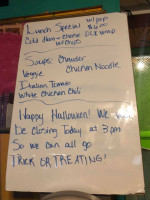 Lunch Special w/pop
Cold Ham + cheese $6.00
w/chips Dlx wrap
Soups: Chowder
Veggie Chicken Noodle
Italian Tomato
White Chicken Chili
Happy Halloween! We will
be closing Today at 3pm
So we can all go
TRICK OR TREATING!